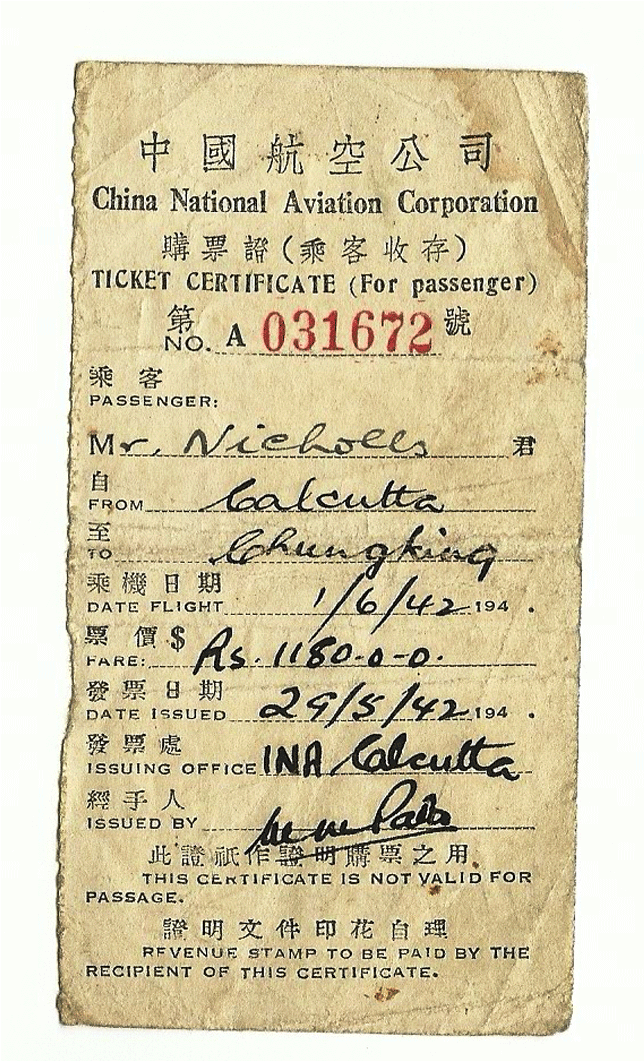 中國航空公司
China National Aviation Corporation
購票證(乘客收存)
TICKET CERTIFICATE (For passenger)
第 號
NO. A 031672
乘客
PASSENGER:
Mr. Nicholls 君
自
FROM Calcutta
至
TO Chungking
乘機日期
DATE FLIGHT 1/6/42 194 .
票價$
FARE: Rs. 1180-0-0.
發票日期
DATE ISSUED 29/5/42 194 .
發票處
ISSUING OFFICE INA Calcutta
經手人
ISSUED BY
此證祇作證明購票之用
THIS CERTIFICATE IS NOT VALID FOR
PASSAGE.
證明文件印花自理
REVENUE STAMP TO BE PAID BY THE
RECIPIENT OF THIS CERTIFICATE.